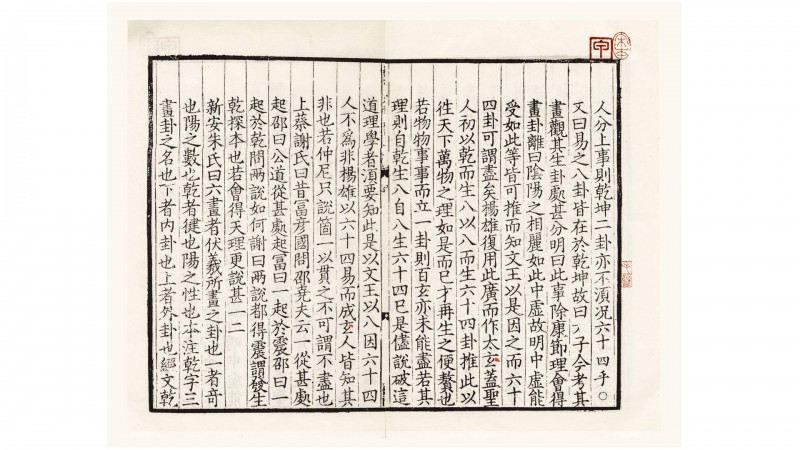 人分上事則乾坤二卦亦不湏况六十四乎〇
又曰易之八卦皆在於乾坤故曰八子今考其
畫觀其生卦處甚分明曰此事除康節理會得
畫卦離曰陰陽之相麗如此中虛故明中虛能
受如此等皆可推而知文王以是因之而六十
四卦可謂盡矣楊雄復用此廣而作太玄蓋聖
人初以乾而生八以八而生六十四卦推此以
徃天下萬物之理如是而已才再生之便贅也
若物物事事而立一卦則百玄亦未能盡若其
理則自乾生八自八生六十四已是儘說破這
道理學者湏要知此是以文王以八因六十四
人不爲非楊雄以六十四易而成玄人皆知其
非也若仲尼只說箇一以貫之不可謂不盡也
上蔡謝氏曰昔冨彦國問邵堯夫云一從甚處
起邵曰公道從甚處起冨曰一起於震邵曰一
起於乾問兩說如何謝曰兩說都得震謂發生
乾探本也若會得天理更說甚一二
新安朱氏曰六畫者伏羲所畫之卦也一者竒
也陽之數也乾者健也陽之性也本注乾字三
畫卦之名也下者内卦也上者外卦也經文乾